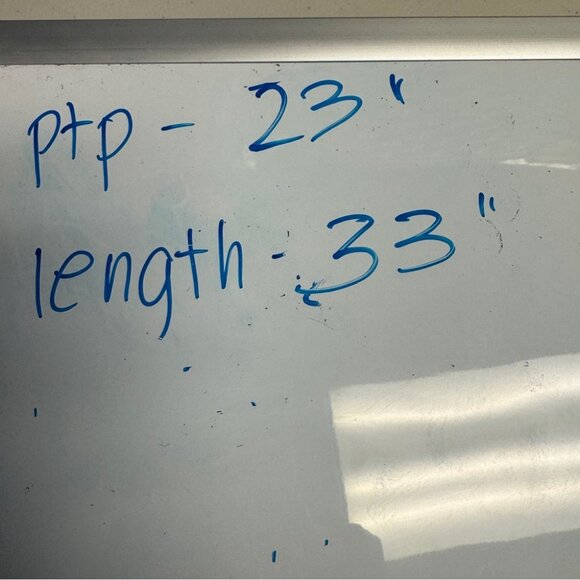 ptp - 23"
length - 33"